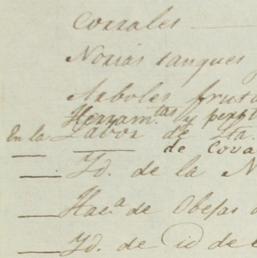 Corrales
Norias tanques y
Arboles frut
Herram.tas y pert
En la Labor de Sta.
de Cova
Yd. de la N
Haz.a de Obejas
Yd. de id de